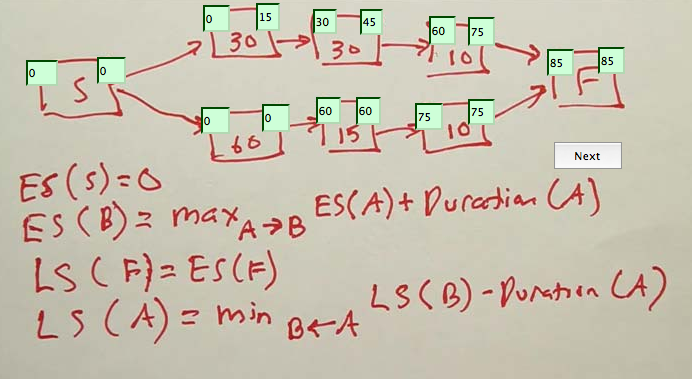 0 15 30 45 60 75
30 30 10
0 0 85 85
S F
0 0 60 60 75 75
60 15 10
Next
ES(S)=0
ES(B)= max A→B ES(A)+Duration(A)
LS(F)=ES(F)
LS(A)= min B←A LS(B)-Duration(A)